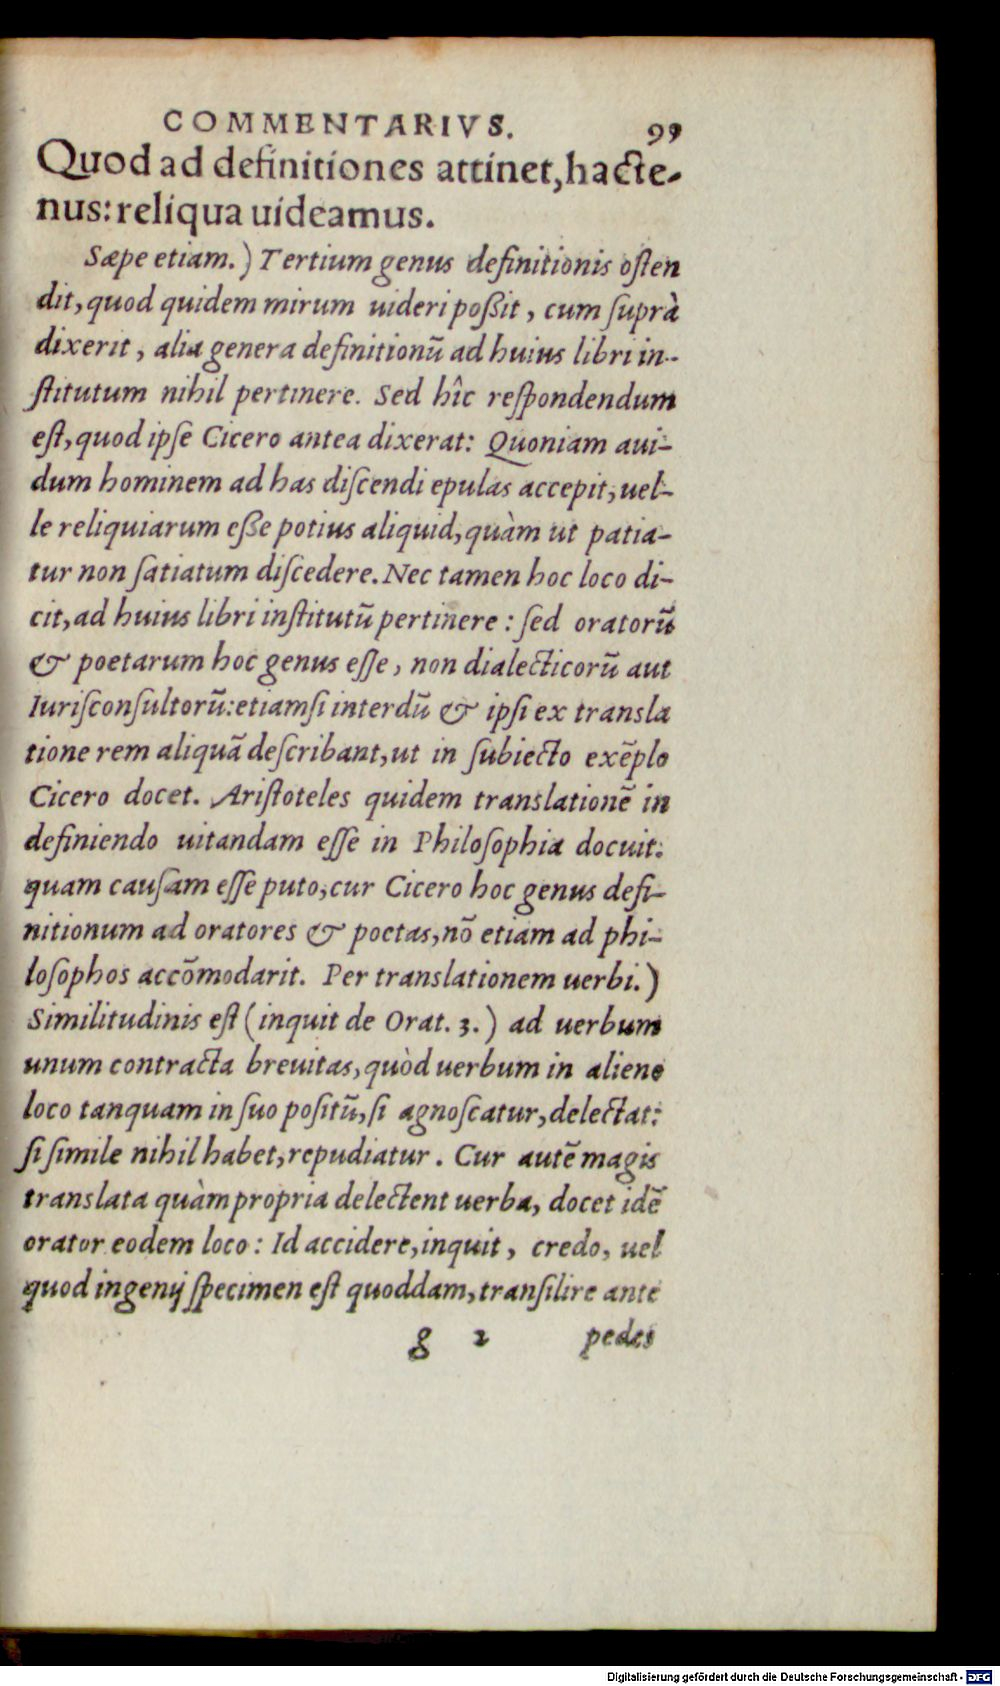 COMMENTARIVS. 99
Quod ad definitiones attinet, hacte-
nus: reliqua uideamus.
Sæpe etiam.) Tertium genus definitionis oſten
dit, quod quidem mirum uideri poßit, cum ſuprà
dixerit, alia genera definitionū ad huius libri in-
ſtitutum nihil pertinere. Sed hîc reſpondendum
eſt, quod ipſe Cicero antea dixerat: Quoniam aui-
dum hominem ad has diſcendi epulas accepit, uel-
le reliquiarum eße potius aliquid, quàm ut patia-
tur non ſatiatum diſcedere. Nec tamen hoc loco di-
cit, ad huius libri inſtitutū pertinere: ſed oratorū
& poetarum hoc genus eſſe, non dialecticorū aut
Iuriſconſultorū: etiamſi interdū & ipſi ex transla
tione rem aliquā deſcribant, ut in ſubiecto exēplo
Cicero docet. Ariſtoteles quidem translationē in
definiendo uitandam eſſe in Philoſophia docuit:
quam cauſam eſſe puto, cur Cicero hoc genus defi-
nitionum ad oratores & poetas, nō etiam ad phi-
loſophos accōmodarit. Per translationem uerbi.)
Similitudinis eſt (inquit de Orat. 3.) ad uerbum
unum contracta breuitas, quòd uerbum in alieno
loco tanquam in ſuo poſitū, ſi agnoſcatur, delectat:
ſi ſimile nihil habet, repudiatur. Cur autē magis
translata quàm propria delectent uerba, docet idē
orator eodem loco: Id accidere, inquit, credo, uel
quod ingenij ſpecimen eſt quoddam, tranſilire ante
g 2 pedes
Digitalisierung gefördert durch die Deutsche Forschungsgemeinschaft - DFG